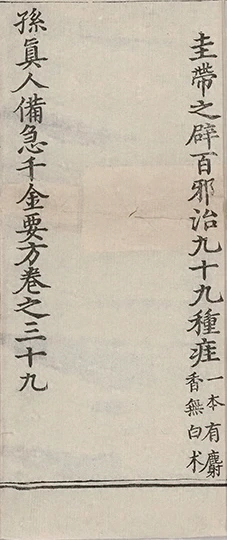 圭帶之辟百邪治九十九種疰一本有麝香無白术
孫眞人備急千金要方卷之三十九